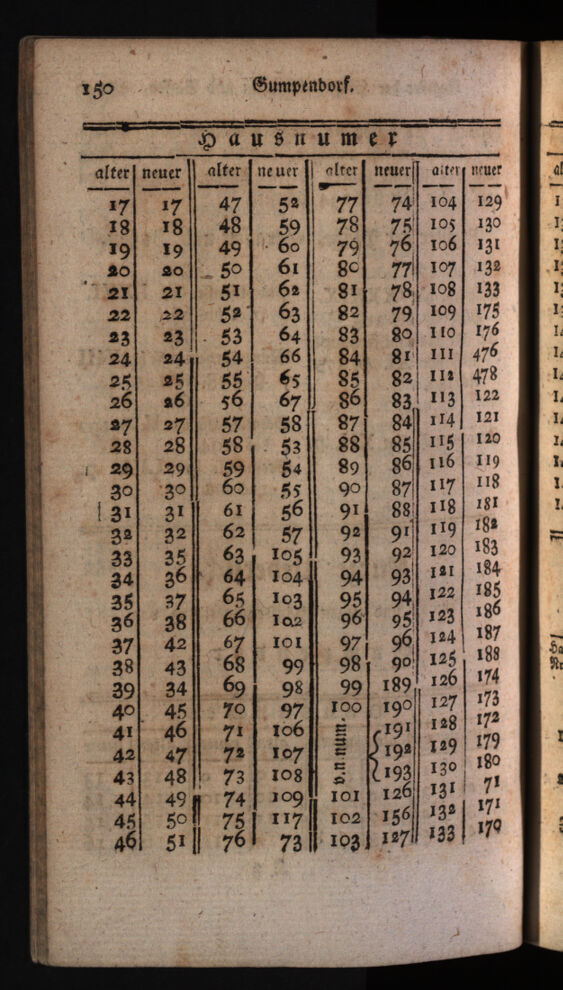 150 Gumpendorf.
Hausnumer
alter neuer alter neuer alter neuer alter neuer
17 17 47 52 77 74 104 129
18 18 48 59 78 75 105 130
19 19 49 60 79 76 106 131
20 20 50 61 80 77 107 132
21 21 51 62 81 78 108 133
22 22 52 63 82 79 109 175
23 23 53 64 83 80 110 176
24 24 54 66 84 81 111 476
25 25 55 65 85 82 112 478
26 26 56 67 86 83 113 122
27 27 57 58 87 84 114 121
28 28 58 53 88 85 115 120
29 29 59 54 89 86 116 119
30 30 60 55 90 87 117 118
31 31 61 56 91 88 118 181
32 32 62 57 92 91 119 182
33 35 63 105 93 92 120 183
34 36 64 104 94 93 121 184
35 37 65 103 95 94 122 185
36 38 66 102 96 95 123 186
37 42 67 101 97 96 124 187
38 43 68 99 98 90 125 188
39 34 69 98 99 189 126 174
40 45 70 97 100 190 127 173
41 46 71 106 o.n num. 191 128 172
42 47 72 107 192 129 179
43 48 73 108 193 130 180
44 49 74 109 101 126 131 71
45 50 75 117 102 156 132 171
46 51 76 73 103 127 133 170